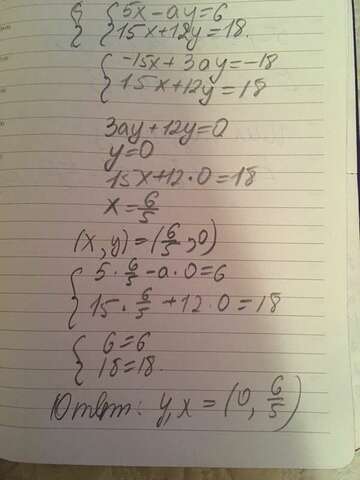 { { 5x - ay = 6
15x + 12y = 18.
{ -15x + 3ay = -18
15x + 12y = 18
3ay + 12y = 0
y = 0
15x + 12 · 0 = 18
x = 6/5
(x, y) = (6/5, 0)
{ 5 · 6/5 - a · 0 = 6
15 · 6/5 + 12 · 0 = 18
{ 6 = 6
18 = 18.
Ответ: y, x = (0, 6/5)